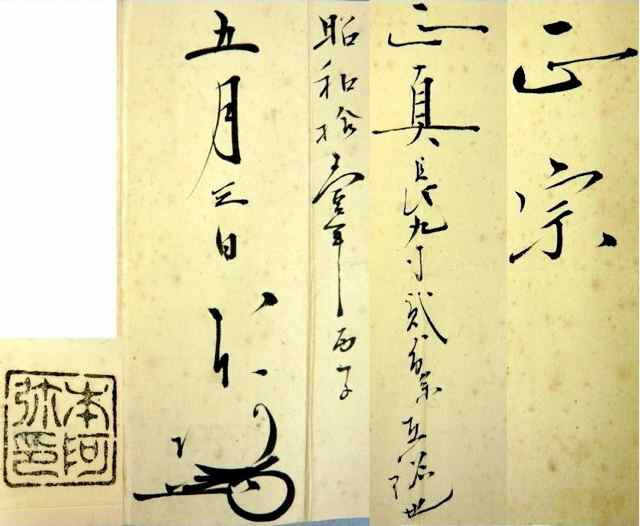 正宗
正真 長九寸貳分
昭和拾壹年丙子
五月三日 本
本阿
弥印